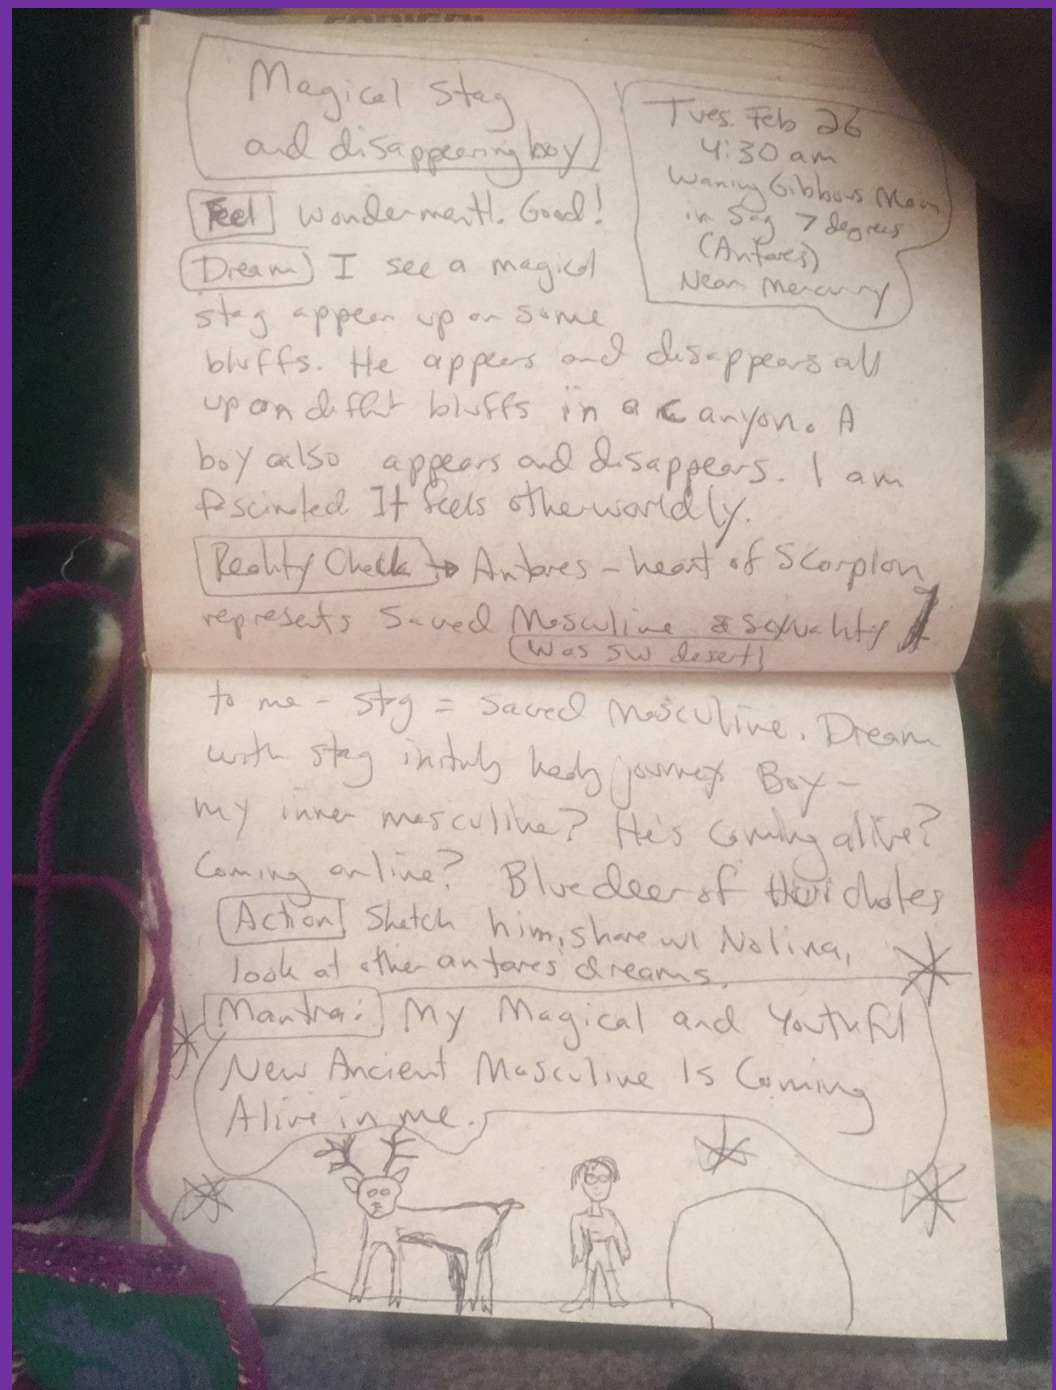 Magical Stag
and disappearing boy
Tues. Feb 26
4:30 am
Waning Gibbous Moon
in Sag 7 degrees
(Antares)
Near Mercury
Feel wonderment. Good!
Dream I see a magical
stag appear up on some
bluffs. He appears and disappears all
up on diffnt bluffs in a canyon. A
boy also appears and disappears. I am
fascinated It feels otherworldly.
Reality Check → Antares – heart of Scorpion
represents Sacred Masculine & sexuality
(Was SW desert)
to me – stag = sacred masculine. Dream
with stag journey Boy –
my inner masculine? He's coming alive?
Coming online? Blue deer of Huicholes
Action Sketch him, share w/ Nolina,
look at other antares dreams.
Mantra: My Magical and Youthful
New Ancient Masculine Is Coming
Alive in me.